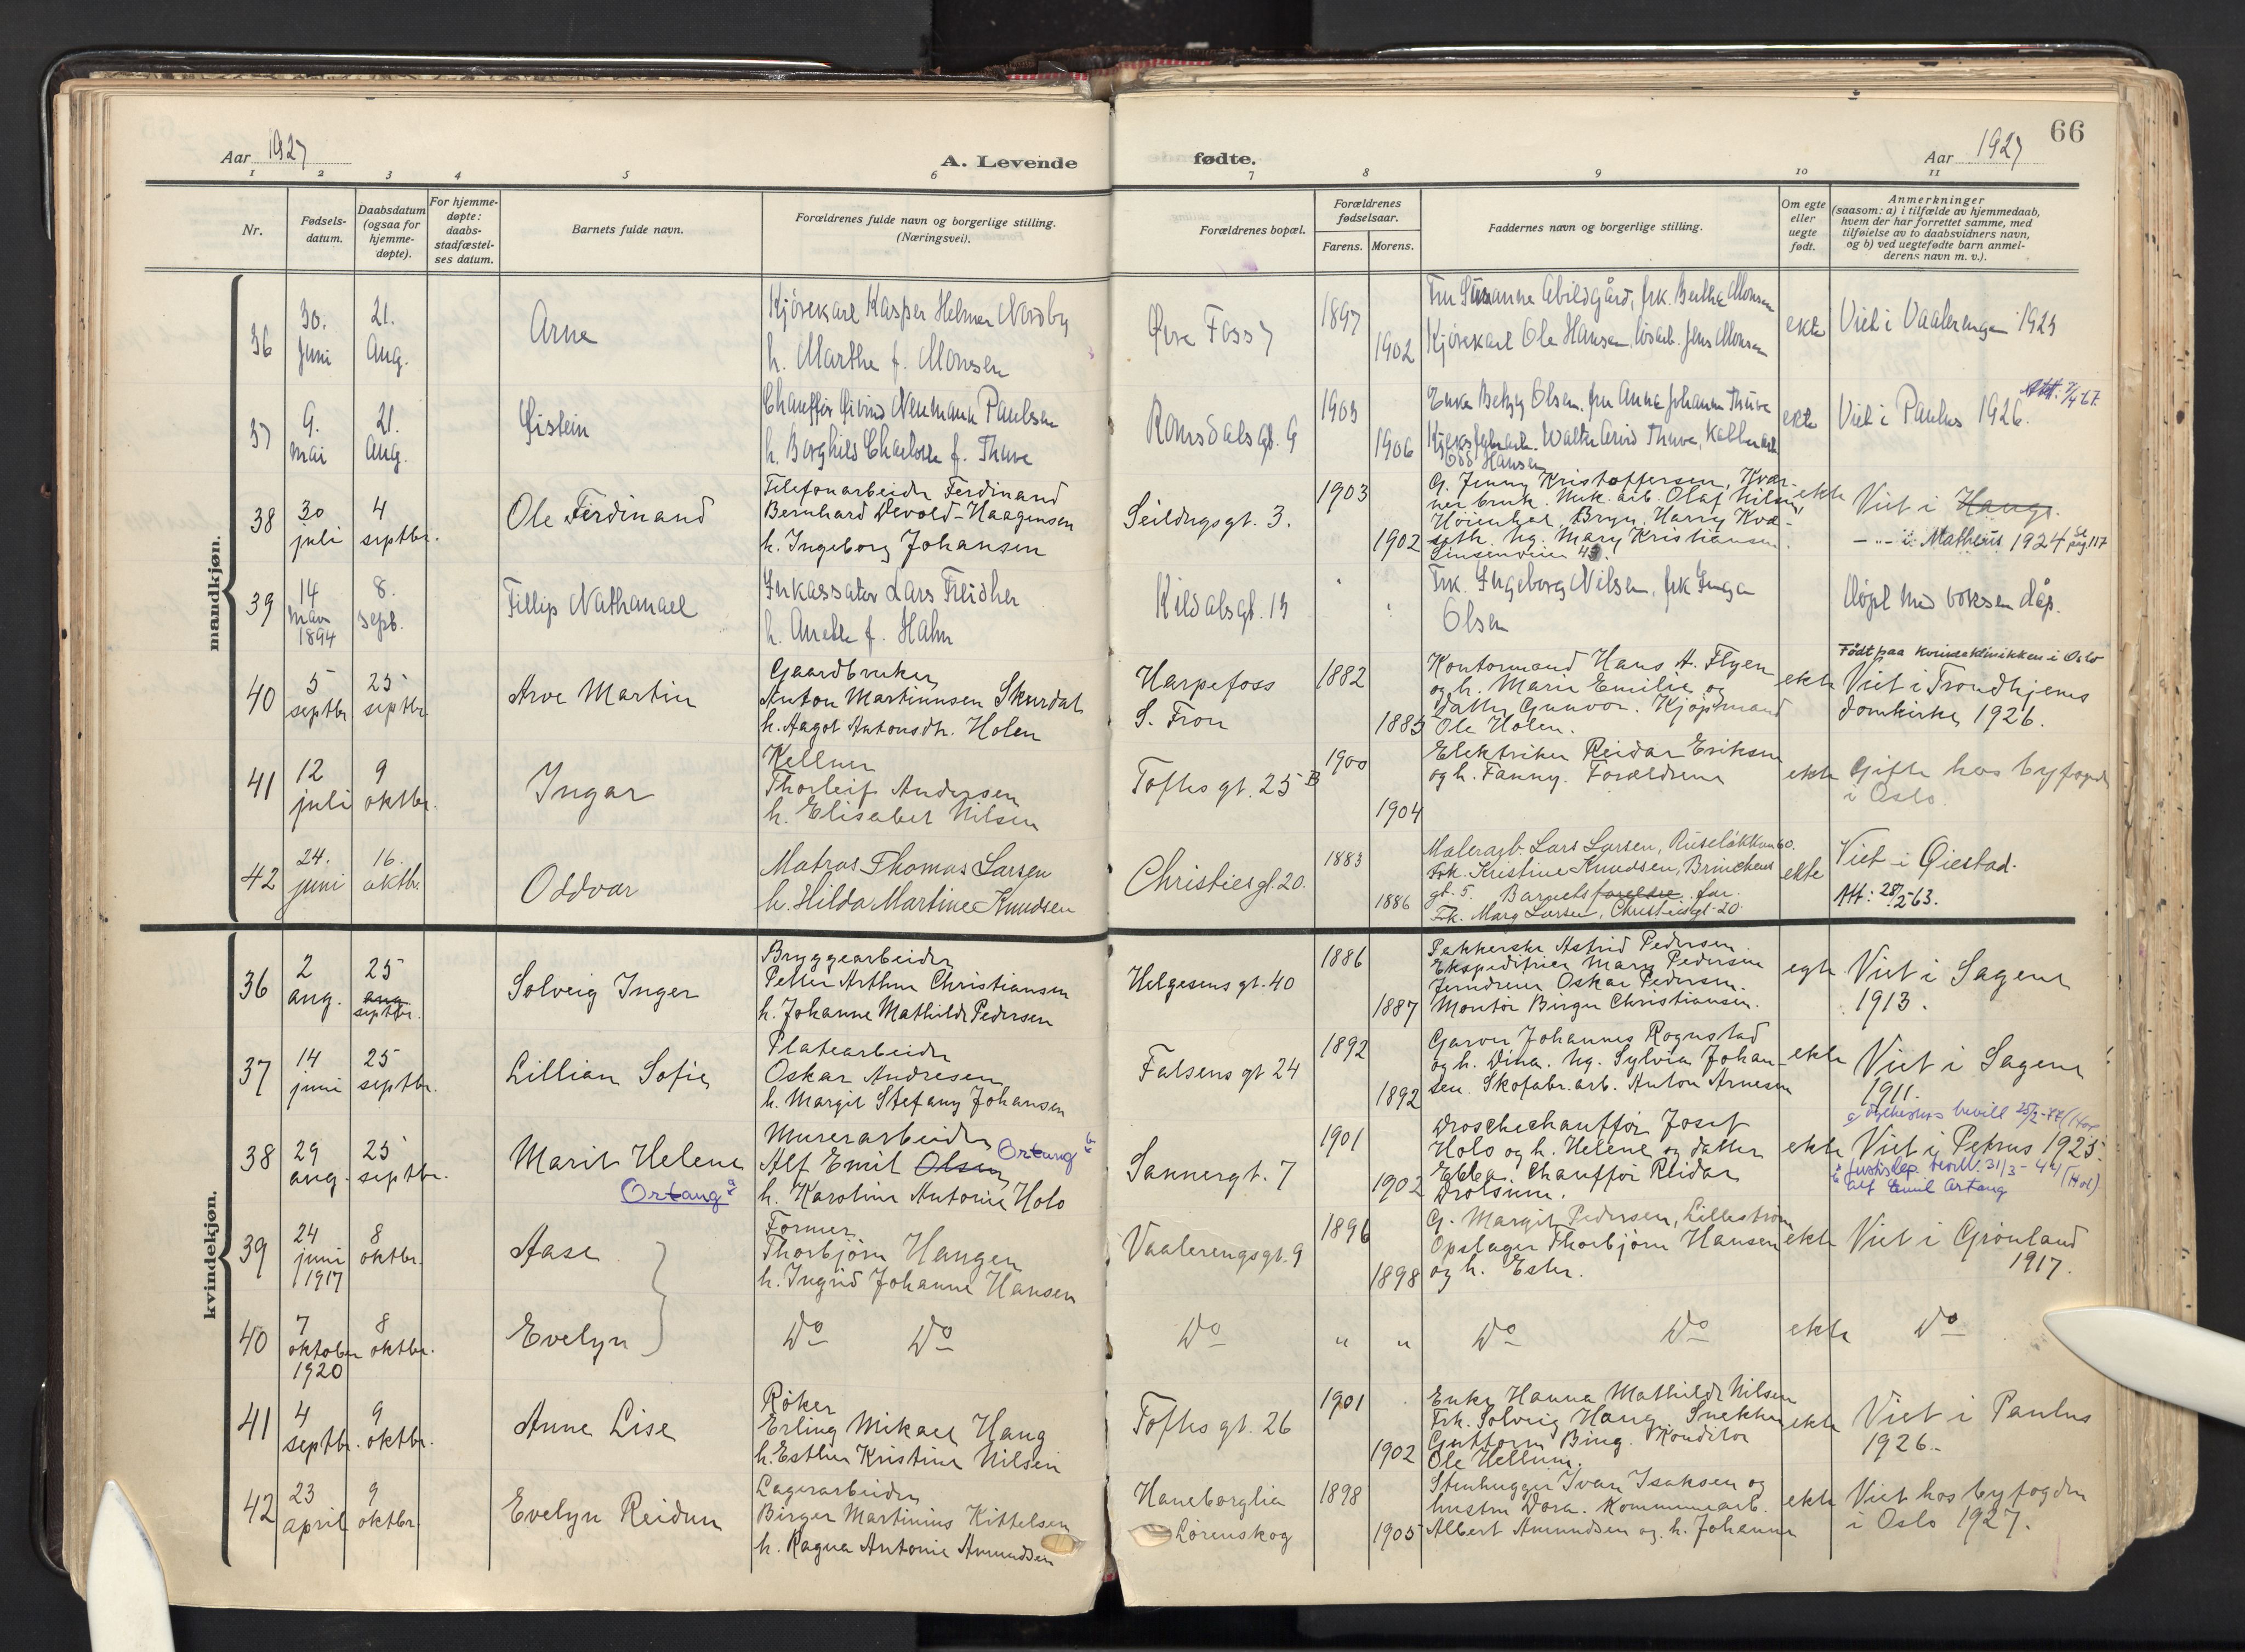 66
Aar 1927
A. Levende fødte.
Aar 1927
1 2 3 4 5 6 7 8 9 10 11
Nr.
Fødsels-
datum.
Daabsdatum
(ogsaa for
hjemme-
døpte).
For hjemme-
døpte:
daabs-
stadfæstel-
ses datum.
Barnets fulde navn.
Forældrenes fulde navn og borgerlige stilling.
(Næringsvei).
Forældrenes bopæl.
Forældrenes
fødselsaar.
Farens. Morens.
Faddernes navn og borgerlige stilling.
Om egte
eller
uegte
født.
Anmerkninger
(saasom: a) i tilfælde av hjemmedaab,
hvem der har forrettet samme, med
tilføielse av to daabsvidners navn,
og b) ved uegtefødte barn anmel-
derens navn m. v.).
mandkjøn.
36
30.
Juni
21.
Aug.
Arne
Kjørekarl Kasper Helmer Nordby
h. Marthe f. Monsen
Øvre Foss 7
1897
1902
Fru Susanne Abildgård, frk. Berthe Monsen
Kjørekarl Ole Hansen, løsarb. Jens Monsen
ekte
Viet i Vaalerengen 1925
37
9.
mai
21.
Aug.
Øistein
Chauffør Øivind Neumann Paulsen
h. Borghild Charlotte f. Thuve
Romsdalsgt. 9
1905
1906
Enke Betzy Olsen, fru Anna Johanne Thuve
Walter Arvid Thuve,
Odd Hansen
ekte
Viet i Paulus 1926.
Att. 7/4 67.
38
30
juli
4
septbr.
Ole Ferdinand
Telefonarbeider Ferdinand
Bernhard Devold-Haagensen
h. Ingeborg Johansen
Seildugsgt. 3.
1903
1902
G. Jenny Kristoffersen, Kvær-
ner bruk. Mek. arb. Olaf Nilsen,
Høienhal, Bryn. Harry Kvæ-
seth. Ug. Mary Kristiansen
Sinsenveien 45
ekte
Viet i Haugs.
-"- i Matheus 1924 se pag 117
39
14
mars
1894
8.
sept.
Fillip Nathanael
Inkassator Lars Freidher
h. Anette f. Hahn
Kildalsgt. 15
Frk. Ingeborg Nilsen, frk Inga
Olsen
Døpt med voksen dåp.
40
5
septbr
25
septbr
Arve Martin
Gaardbruker
Anton Martinusen Skurdal
h. Aagot Antonsdtr. Holen
Harpefoss
S. Fron
1882
1885
Kontormand Hans A. Flyen
og h. Marie Emilie og
datter Gunvor. Kjøpmand
Ole Holen.
ekte
Født paa kvindeklinikken i Oslo
Viet i Trondhjems
domkirke 1926.
41
12
juli
9
oktbr.
Ingar
Kellner
Thorleif Andersen
h. Elisabet Nilsen
Toftes gt. 25 B
1900
1904
Elektriker Reidar Eriksen
og h. Fanny. Forældrene
ekte
Gifte hos byfogden
i Oslo.
42
24.
juni
16.
oktbr.
Oddvar
Matros Thomas Larsen
h. Hilda Martine Knudsen
Christiesgt. 20.
1883
1886
Malerarb. Lars Larsen, Ruseløkkvn 60.
Frk. Kristine Knudsen, Brinchens
gt. 5. Barnets foreldre far.
Frk. Mary Larsen, Christiesgt. 20.
ekte
Viet i Øiestad.
Att: 28/2-63.
kvindekjøn.
36
2
aug.
25
aug
septbr.
Solveig Inger
Bryggearbeider
Petter Arthur Christiansen
h. Johanne Mathilde Pedersen
Helgesens gt. 40
1886
1887
Pakkerske Astrid Pedersen
Ekspeditrice Mary Pedersen
Jerndreier Oskar Pedersen.
Montør Birger Christiansen.
egte
Viet i Sagene
1913.
37
14
juni
25
septbr.
Lillian Sofie
Platearbeider
Oskar Andresen
h. Margit Stefany Johansen
Falsens gt 24
1892
1892
Garver Johannes Rognstad
og h. Dina. Ug. Sylvia Johan-
sen. Skofabr.arb. Anton Arnesen
ekte
Viet i Sagene
1911.
38
29
aug.
25
septbr.
Marit Helene
Ortang a
Murerarbeider
Alf Emil Olsen Ortang b
h. Karoline Antonie Holo
Sannergt. 7
1901
1902
Droschechauffør Josef
Holo og h. Helene og datter
Ebba. Chauffør Reidar
Drolsum.
ekte
a Fylkesms bevill 25/2-47
Viet i Petrus 1925.
b Justisdep. bevill. 31/3-49 (Hol)
Alf Emil Artang
39
24
juni
1917
8
oktbr.
Aase
Former
Thorbjørn Haugen
h. Ingrid Johanne Hansen
Vaalerengsgt. 9
1896
1898
G. Margit Pedersen, Lillestrøm
Opslager Thorbjørn Hansen
og h. Ester.
ekte
Viet i Grønland
1917.
40
7
oktober
1920
8
oktbr.
Evelyn
Do Do
Do
" "
Do Do
ekte
Do
41
4
septbr.
9
oktbr.
Anne Lise
Røker
Erling Mikael Haug
h. Esther Kristine Nilsen
Toftes gt. 26
1901
1902
Enke Hanna Mathilde Nilsen
Frk. Solveig Haug. Snekker
Guttorm Bing. Konditor
Ole Hellum.
ekte
Viet i Paulus
1926.
42
23
april
9
oktbr.
Evelyn Reidun
Lagerarbeider
Birger Martinius Kittelsen
h. Ragna Antonie Amundsen
Haneborglia
Lørenskog
1898
1905
Stenhugger Ivar Isaksen og
hustru Dora. Kommunearb.
Albert Amundsen og h. Johanne
ekte
Viet hos byfogden
i Oslo 1927.